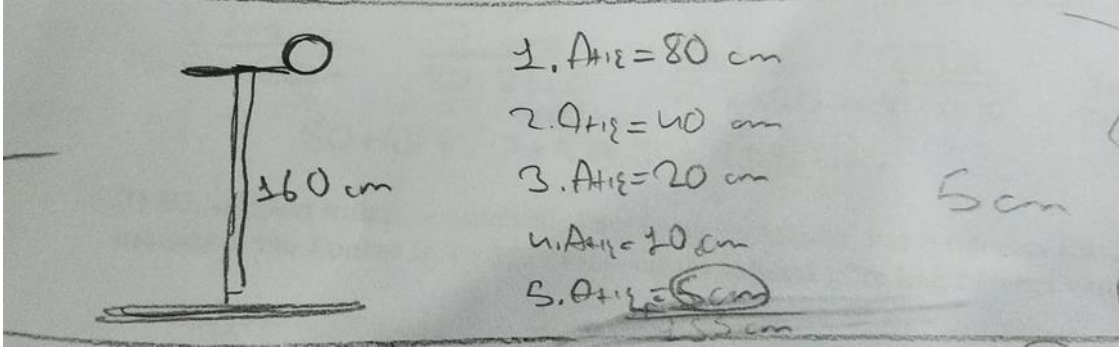 160 cm
1. Atış = 80 cm
2. Atış = 40 cm
3. Atış = 20 cm
4. Atış = 10 cm
5. Atış = 5 cm
155 cm
5 cm